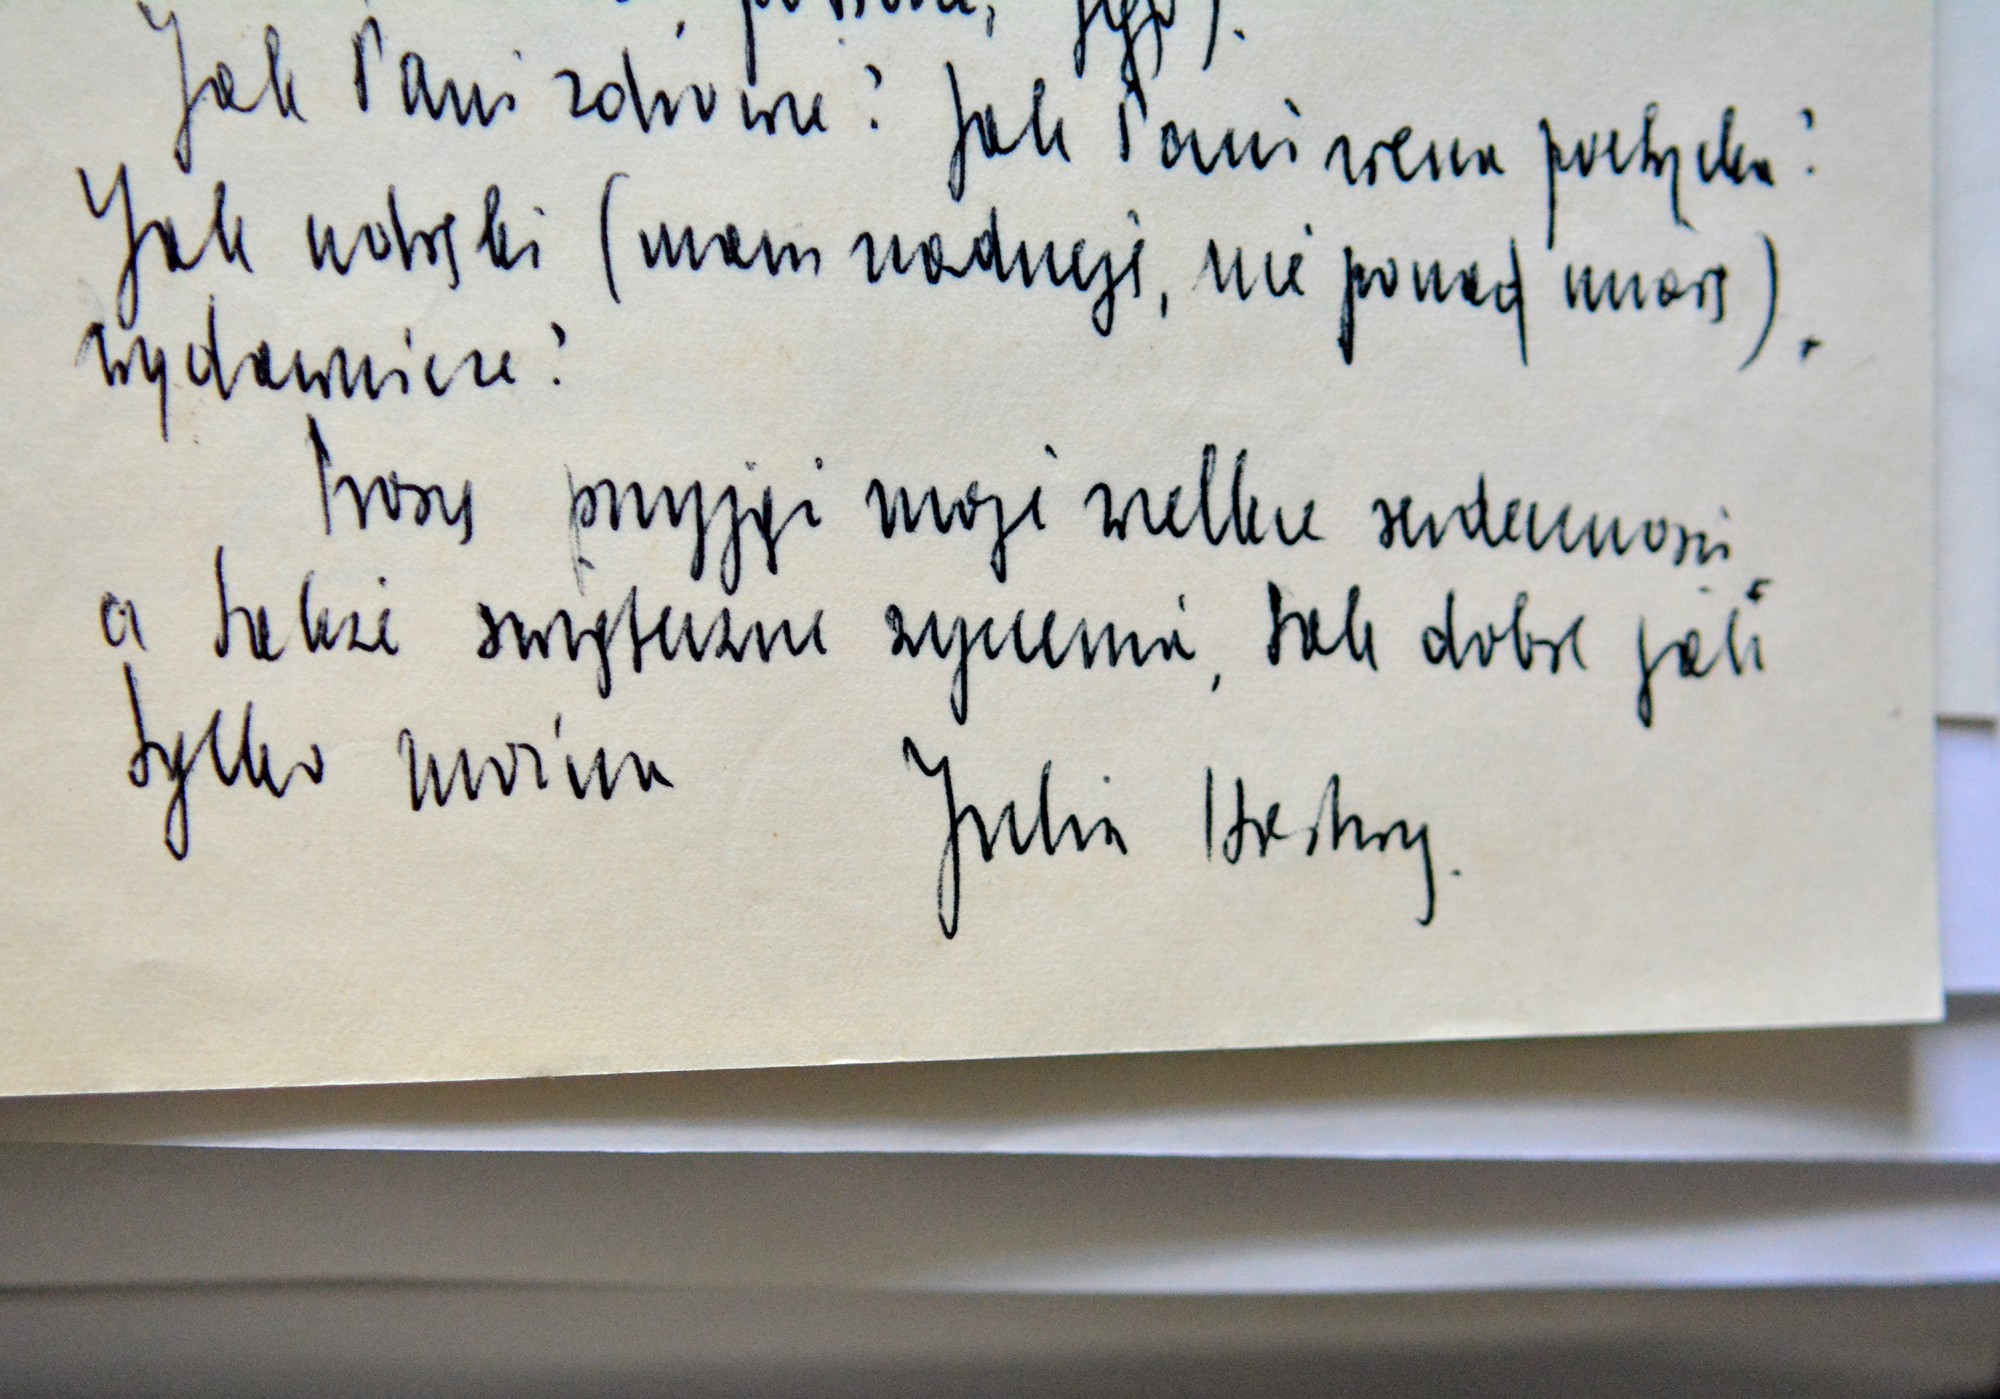 Jak Pani zdrowie? Jak Pani wena poetycka?
Jak udręki (mam nadzieję, nie ponad miarę)
wydawnicze?
Proszę przyjąć moje wielkie serdeczności
a także świąteczne życzenia, tak dobre jak
tylko można
Julia Hartwig.